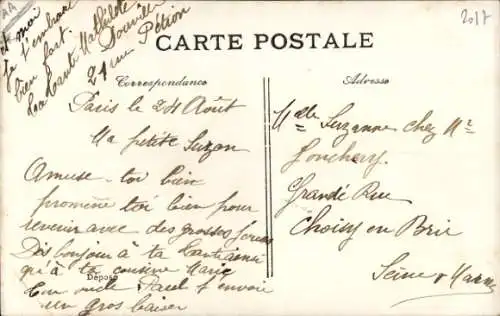 AA
2017
et moi
je t'embrasse
bien fort.
Ta tante Mathilde
21 rue Pétion
CARTE POSTALE
Correspondance
Adresse
Paris le 24 Août
Ma petite Suzon
Amuse-toi bien
promène toi bien pour
revenir avec des grosses
Dis bonjour à ta
qu'à ta cousine Marie
Ton oncle Paul t'envoie
un gros baiser
Déposé
Melle Suzanne chez Mr
Grande Rue
Choisy en Brie
Seine & Marne